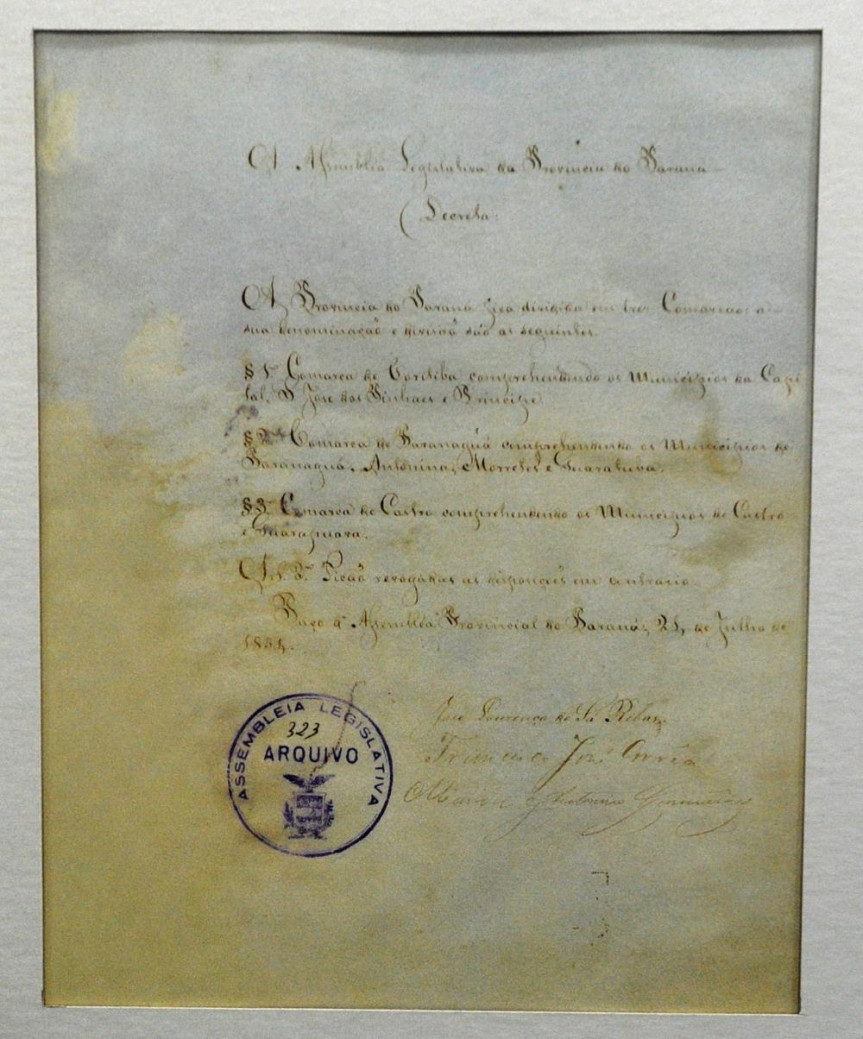 A Assemblea Legislativa da Provincia do Paraná
Decreta:
A Provincia do Paraná fica dividida em tres Comarcas, a
sua denominação e divisão são as seguintes.
§ 1º Comarca de Coritiba comprehendendo os Municipios da Capi
tal, S José dos Pinhaes e Principe
§ 2º Comarca de Paranaguá comprehendendo os Municipios de
Paranaguá, Antonina, Morretes e Guaratuba.
§ 3º Comarca de Castro comprehendendo os Municipios de Castro
e Guarapuava.
Art. 3º Ficão revogadas as disposições em contrario
Paço d' Assemblea Provincial do Paraná, 24 de Julho de
1854.
José Lourenço de Sá Ribas
Francisco José Corrêa
Manoel Antonio
ASSEMBLEIA LEGISLATIVA
323
ARQUIVO